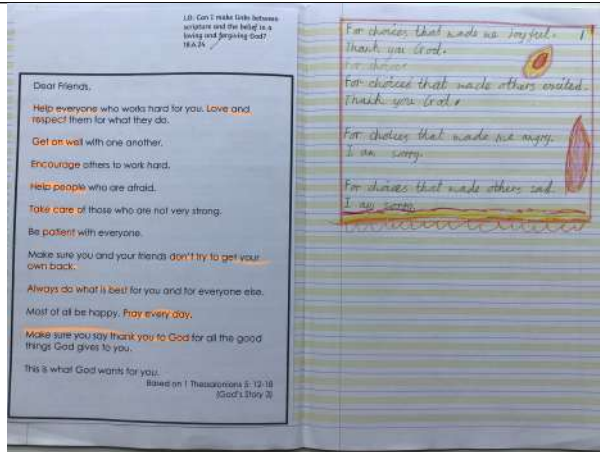 L.O: Can I make links between
scripture and the belief in a
loving and forgiving God?
18.6.24
Dear Friends,
Help everyone who works hard for you. Love and
respect them for what they do.
Get on well with one another.
Encourage others to work hard.
Help people who are afraid.
Take care of those who are not very strong.
Be patient with everyone.
Make sure you and your friends don't try to get your
own back.
Always do what is best for you and for everyone else.
Most of all be happy. Pray every day.
Make sure you say thank you to God for all the good
things God gives to you.
This is what God wants for you.
Based on 1 Thessalonians 5: 12-18
(God's Story 3)
For choices that made me joyfeel.
Thank you God.
For choices
For choices that made others excited.
Thank you God.
For choices that made me angry.
I am sorry.
For choices that made others sad.
I am sorry.